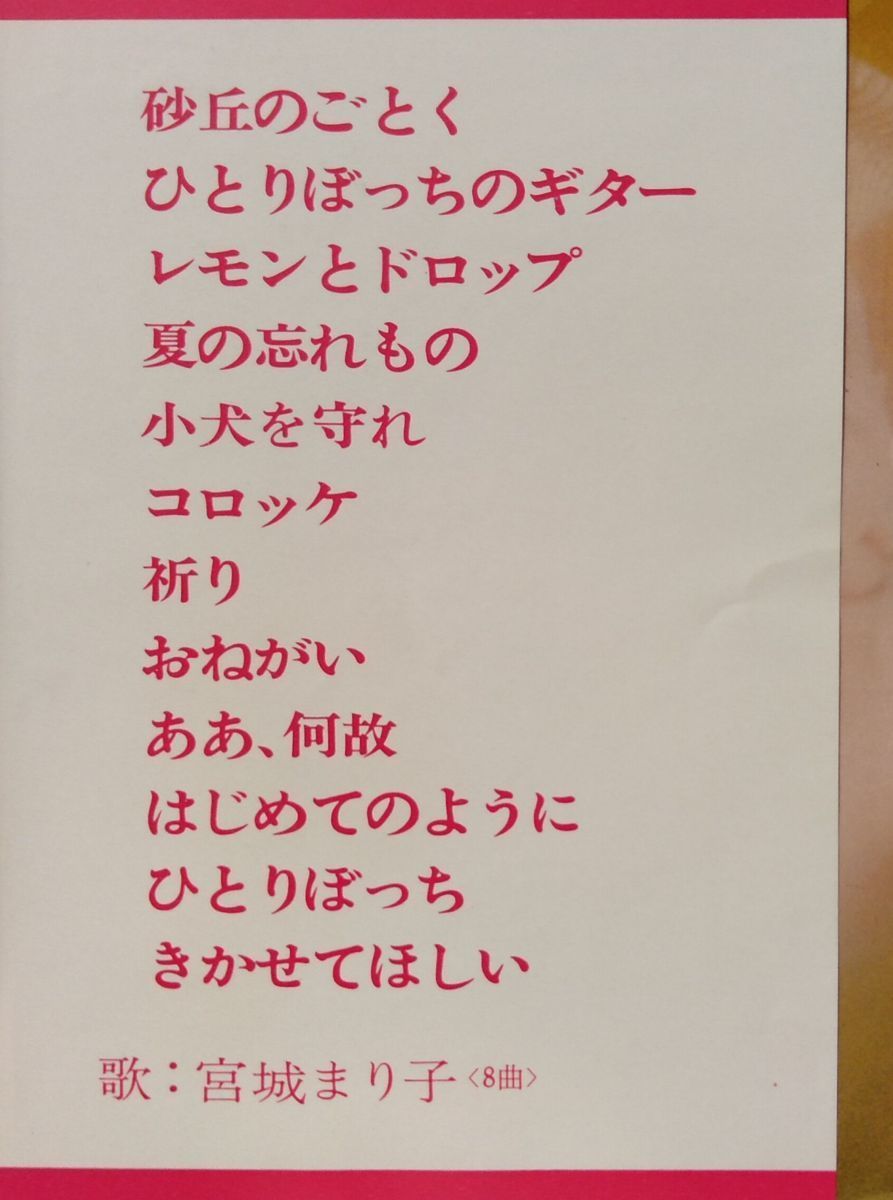 砂丘のごとく
ひとりぼっちのギター
レモンとドロップ
夏の忘れもの
小犬を守れ
コロッケ
祈り
おねがい
ああ、何故
はじめてのように
ひとりぼっち
きかせてほしい
歌：宮城まり子〈8曲〉